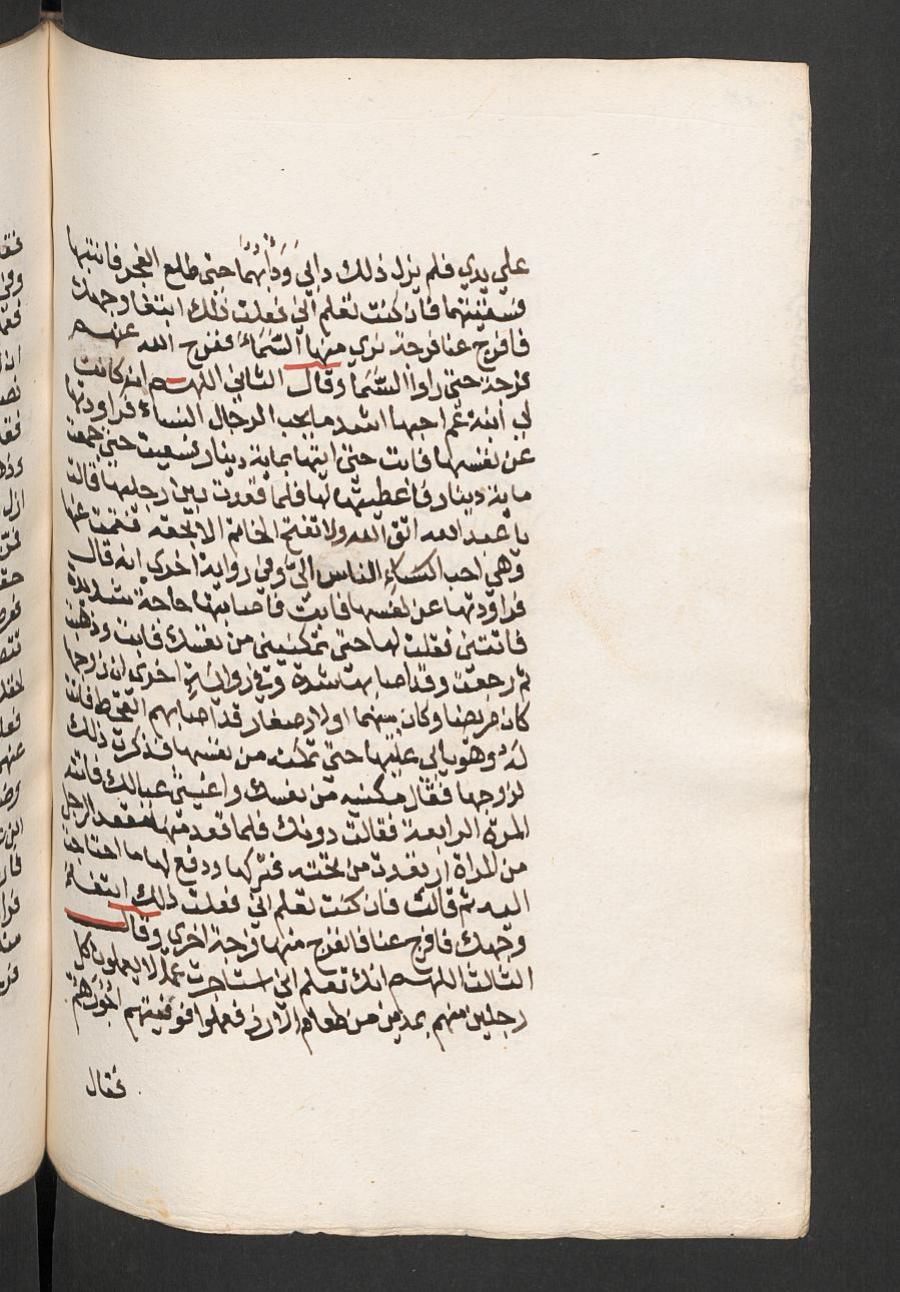 علي يدي فلم يزل ذلك دابي ودابهما حتى طلع الفجر فانتبها
فسقيتهما فان كنت تعلم اني فعلت ذلك ابتغا وجهك
فافرج عنا فرجة نري منها السماء ففرج الله عنهم
فرجة حتى راوا السما وقال الثاني اللهم انه كانت
لي ابنة عم احبها اشد ما يحب الرجال النساء فراودتها
عن نفسها فابت حتى اتيها بماية دينار فسعيت حتى جمعت
ماية دينار فاعطيتها لها فلما قعدت بين رجليها قالت
يا عبد الله اتق الله ولا تفتح الخاتم الا بحقه فقمت عنها
وهي احب النساء الناس الي وفي رواية اخري انه قال
فراودتها عن نفسها فابت فاصابتها حاجة شديدة
فاتتني فقلت لها حتى تمكنيني من نفسك فابت وذهبت
ثم رجعت وقد اصابها شدة وفي رواية اخري ان زوجها
كان مريضا وكان بينهما اولاد صغار قد اصابهم القحط فاتت
له وهو يابي عليها حتى تمكنه من نفسها فذكرت ذلك
لزوجها فقال مكنيه من نفسك واغيثي عيالك فاتته
المرة الرابعة فقالت دونك فلما قعد منها مقعد الرجل
من المراة ارتعدت من تحته فتركها ودفع لها ما احتاجت
اليه ثم قالت فان كنت تعلم اني فعلت ذلك ابتغاء
وجهك فافرج عنا فانفرج منها فرجة اخري وقال
الثالث اللهم انك تعلم اني استاجرت عملا يعملون كل
رجلين منهم بمدين من طعام الارز فعملوا فوفيتهم اجورهم
فقال